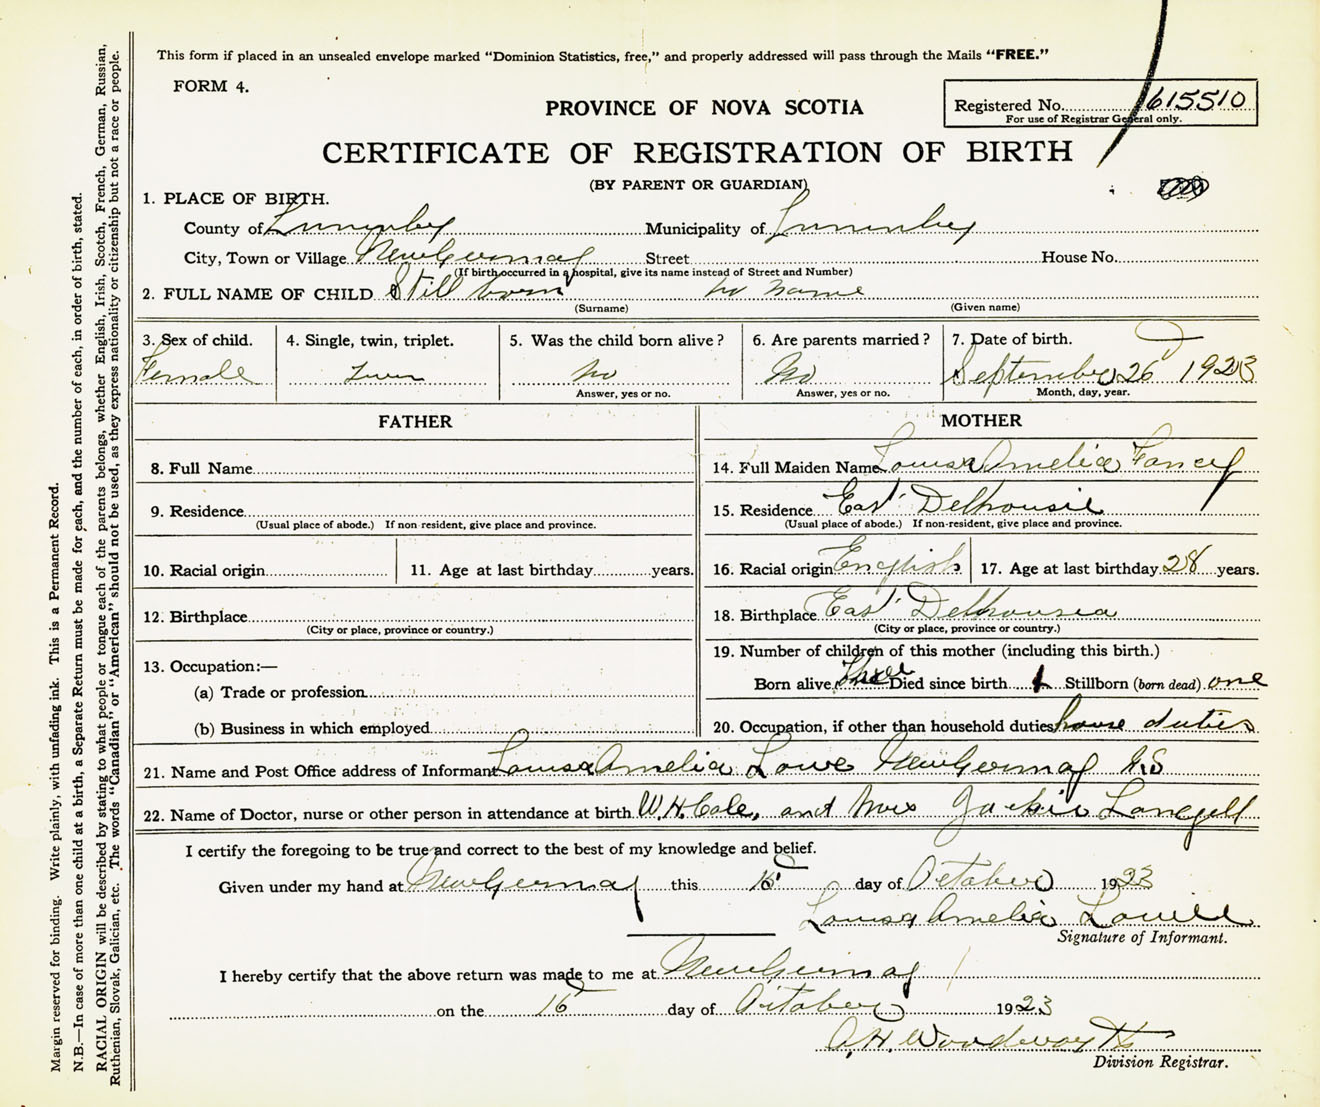 This form if placed in an unsealed envelope marked "Dominion Statistics, free," and properly addressed will pass through the Mails "FREE."
FORM 4.
Registered No. 615510
For use of Registrar General only.
PROVINCE OF NOVA SCOTIA
CERTIFICATE OF REGISTRATION OF BIRTH
(BY PARENT OR GUARDIAN)
1. PLACE OF BIRTH.
County of Lunenbey Municipality of Lunenbey
City, Town or Village New Germay Street House No.
(If birth occurred in a hospital, give its name instead of Street and Number)
2. FULL NAME OF CHILD Still born no name
(Surname) (Given name)
3. Sex of child. 4. Single, twin, triplet. 5. Was the child born alive? 6. Are parents married? 7. Date of birth.
Female Twin no No September 26 1923
Answer, yes or no. Answer, yes or no. Month, day, year.
FATHER
8. Full Name
9. Residence
(Usual place of abode.) If non-resident, give place and province.
10. Racial origin 11. Age at last birthday years.
12. Birthplace
(City or place, province or country.)
13. Occupation:—
(a) Trade or profession
(b) Business in which employed
MOTHER
14. Full Maiden Name Louisa Amelia Fancy
15. Residence East Delhousie
(Usual place of abode.) If non-resident, give place and province.
16. Racial origin English 17. Age at last birthday 28 years.
18. Birthplace East Delhousia
(City or place, province or country.)
19. Number of children of this mother (including this birth.)
Born alive Three Died since birth 1 Stillborn (born dead) one
20. Occupation, if other than household duties house duties
21. Name and Post Office address of Informant Louisa Amelia Lowe New Germay N.S
22. Name of Doctor, nurse or other person in attendance at birth W.H. Cole, and Mrs Langell
I certify the foregoing to be true and correct to the best of my knowledge and belief.
Given under my hand at New Germay this 15 day of October 1923
Louisa Amelia
Signature of Informant.
I hereby certify that the above return was made to me at New Germay
on the 15 day of October 1923
A.H. Woodworth
Division Registrar.
Margin reserved for binding. Write plainly, with unfading ink. This is a Permanent Record.
N.B.—In case of more than one child at a birth, a Separate Return must be made for each, and the number of each, in order of birth, stated.
RACIAL ORIGIN will be described by stating to what people or tongue each of the parents belongs, whether English, Irish, Scotch, French, German, Russian,
Ruthenian, Slovak, Galician, etc. The words "Canadian" or "American" should not be used, as they express nationality or citizenship but not a race or people.